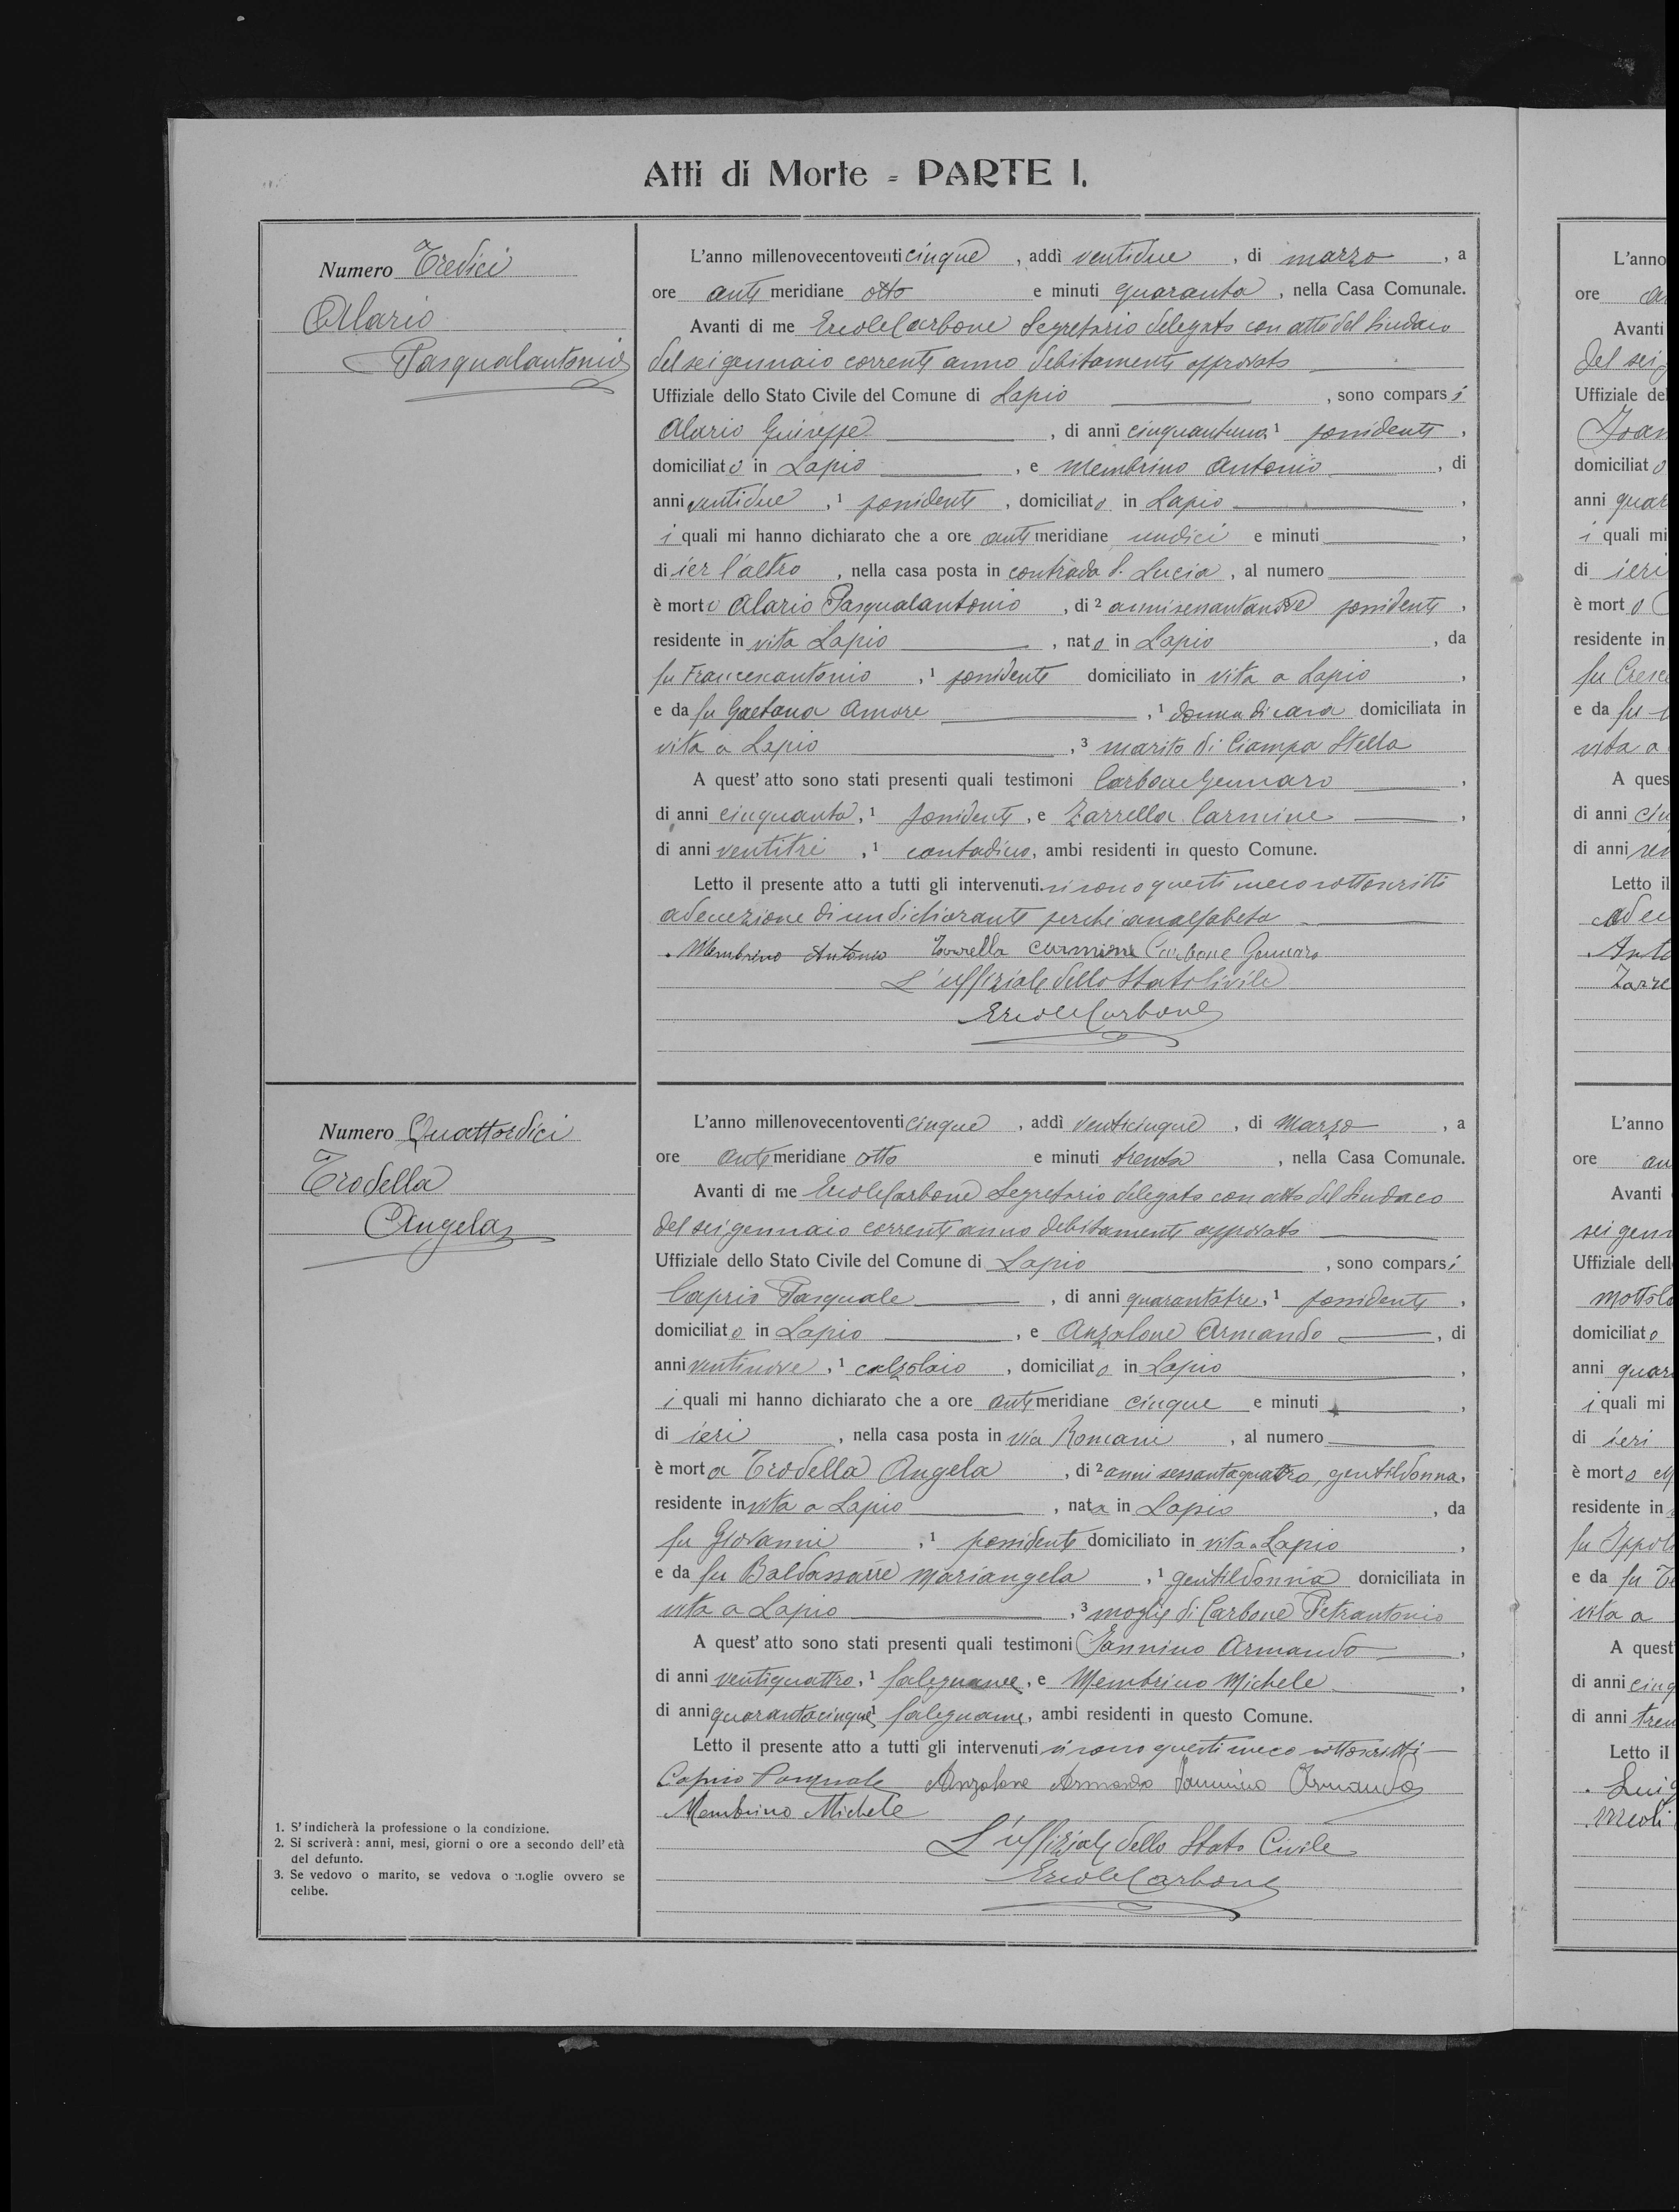 Atti di Morte - PARTE I.
Numero Tredici
Alario
Pasqualantonio
L'anno millenovecentoventicinque, addì ventidue, di marzo, a
ore antimeridiane otto e minuti quaranta, nella Casa Comunale.
Avanti di me Ercole Carbone Segretario delegato con atto del Sindaco
del sei gennaio corrente anno debitamente approvato
Uffiziale dello Stato Civile del Comune di Lapio, sono comparsi
Alario Giuseppe, di anni cinquantuno, 1 possidente,
domiciliato in Lapio, e Membrino Antonio, di
anni ventidue, 1 possidente, domiciliato in Lapio,
i quali mi hanno dichiarato che a ore antimeridiane undici e minuti,
di ier l'altro, nella casa posta in contrada S. Lucia, al numero
è morto Alario Pasqualantonio, di 2 anni sessantanove possidente,
residente in vita Lapio, nato in Lapio, da
fu Francescantonio, 1 possidente domiciliato in vita a Lapio,
e da fu Gaetana Amore, 1 donna di casa domiciliata in
vita a Lapio, 3 marito di Ciampa Stella
A quest' atto sono stati presenti quali testimoni Carbone Gennaro,
di anni cinquanta, 1 possidente, e Zarrella Carmine,
di anni ventitre, 1 contadino, ambi residenti in questo Comune.
Letto il presente atto a tutti gli intervenuti. si sono questi meco sottoscritti
ad eccezione di un dichiarante perchè analfabeta
Membrino Antonio Zarrella Carmine Carbone Gennaro
L'uffiziale dello Stato Civile
Ercole Carbone
Numero Quattordici
Trodella
Angela
L'anno millenovecentoventicinque, addì venticinque, di Marzo, a
ore antimeridiane otto e minuti trenta, nella Casa Comunale.
Avanti di me Ercole Carbone Segretario delegato con atto del Sindaco
del sei gennaio corrente anno debitamente approvato
Uffiziale dello Stato Civile del Comune di Lapio, sono comparsi
Caprio Pasquale, di anni quarantatre, 1 possidente,
domiciliato in Lapio, e Anzalone Armando, di
anni ventinove, 1 calzolaio, domiciliato in Lapio,
i quali mi hanno dichiarato che a ore antimeridiane cinque e minuti,
di ieri, nella casa posta in via Romani, al numero
è morta Trodella Angela, di 2 anni sessantaquattro, gentildonna,
residente in vita a Lapio, nata in Lapio, da
fu Giovanni, 1 possidente domiciliato in vita a Lapio,
e da fu Baldassarre Mariangela, 1 gentildonna domiciliata in
vita a Lapio, 3 moglie di Carbone Pietrantonio
A quest' atto sono stati presenti quali testimoni Iannino Armando,
di anni ventiquattro, 1 falegname, e Membrino Michele,
di anni quarantacinque, 1 falegname, ambi residenti in questo Comune.
Letto il presente atto a tutti gli intervenuti si sono questi meco sottoscritti
Caprio Pasquale Anzalone Armando Iannino Armando
Membrino Michele
L'uffiziale dello Stato Civile
Ercole Carbone
1. S'indicherà la professione o la condizione.
2. Si scriverà: anni, mesi, giorni o ore a secondo dell'età
del defunto.
3. Se vedovo o marito, se vedova o moglie ovvero se
celibe.
L'anno
ore
Avanti
del sei
Uffiziale del
domiciliato
anni
i quali mi
di ieri
è morto
residente in
fu
e da fu
vita a
A ques
di anni
di anni
Letto il
L'anno
ore
Avanti
sei
Uffiziale dell
domiciliato
anni
i quali mi
di ieri
è morto
residente in
fu
e da fu
vita a
A quest
di anni
di anni
Letto il